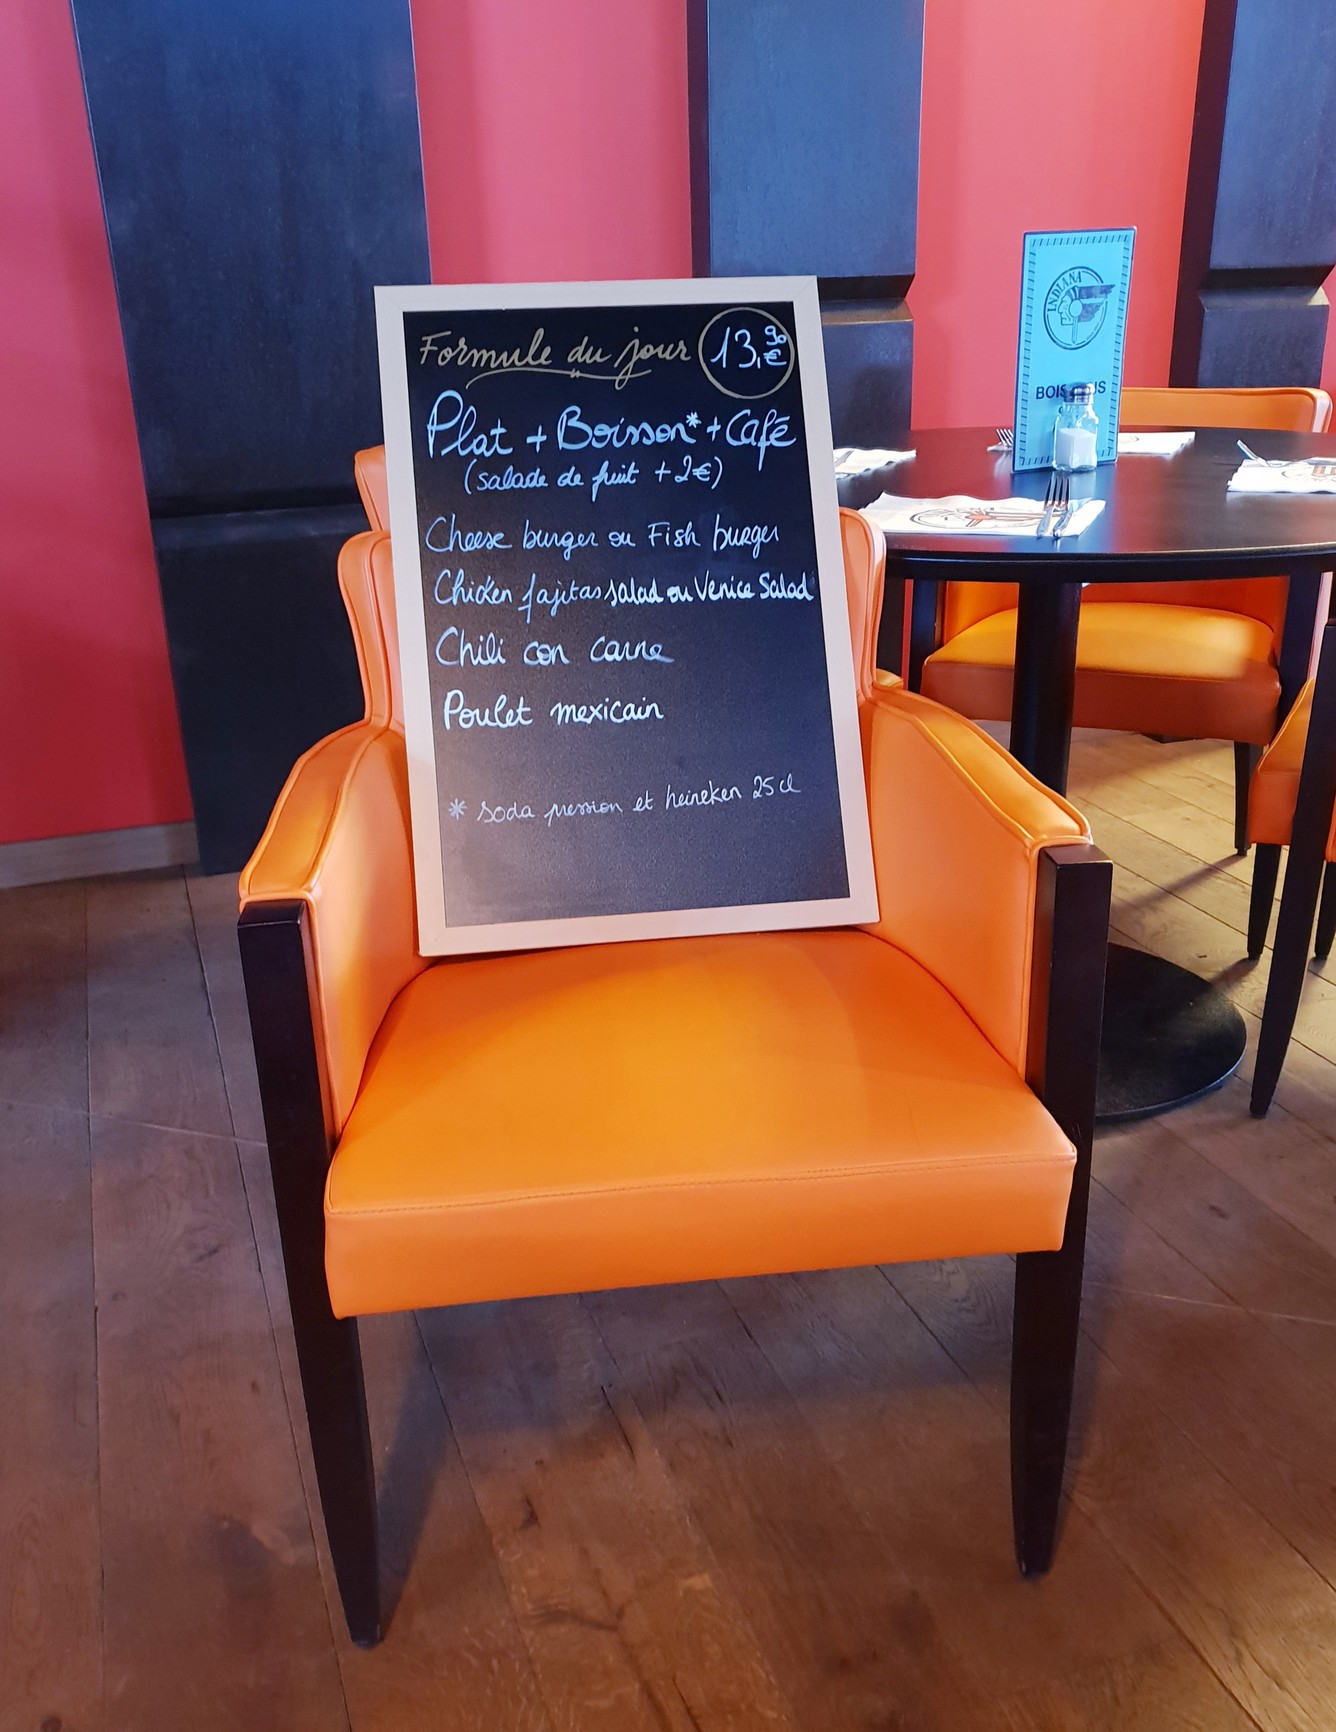 Formule du jour 13,90€
Plat + Boisson* + Café
(salade de fruit + 2€)
Cheese burger ou Fish burger
Chicken fajitas salad ou Venice Salad
Chili con carne
Poulet mexicain
* soda pression et heineken 25 cl
INDIANA